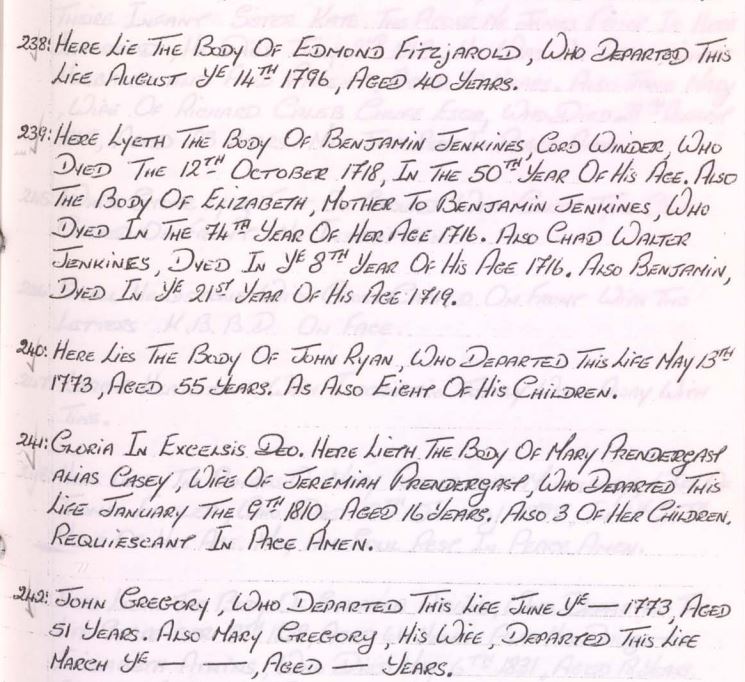 238: HERE LIE THE BODY OF EDMOND FITZJAROLD, WHO DEPARTED THIS
LIFE AUGUST YE 14TH 1796, AGED 40 YEARS.
239: HERE LYETH THE BODY OF BENJAMIN JENKINES, CORD WINDER, WHO
DYED THE 12TH OCTOBER 1718, IN THE 50TH YEAR OF HIS AGE. ALSO
THE BODY OF ELIZABETH, MOTHER TO BENJAMIN JENKINES, WHO
DYED IN THE 74TH YEAR OF HER AGE 1716. ALSO CHAD WALTER
JENKINES, DYED IN YE 8TH YEAR OF HIS AGE 1716. ALSO BENJAMIN,
DYED IN YE 21ST YEAR OF HIS AGE 1719.
240: HERE LIES THE BODY OF JOHN RYAN, WHO DEPARTED THIS LIFE MAY 13TH
1773, AGED 55 YEARS. AS ALSO EIGHT OF HIS CHILDREN.
241: GLORIA IN EXCELSIS DEO. HERE LIETH THE BODY OF MARY PRENDERGAST
ALIAS CASEY, WIFE OF JEREMIAH PRENDERGAST, WHO DEPARTED THIS
LIFE JANUARY THE 9TH 1810, AGED 16 YEARS. ALSO 3 OF HER CHILDREN.
REQUIESCANT IN PACE AMEN.
242: JOHN GREGORY, WHO DEPARTED THIS LIFE JUNE YE — 1773, AGED
51 YEARS. ALSO MARY GREGORY, HIS WIFE, DEPARTED THIS LIFE
MARCH YE — —, AGED — YEARS.